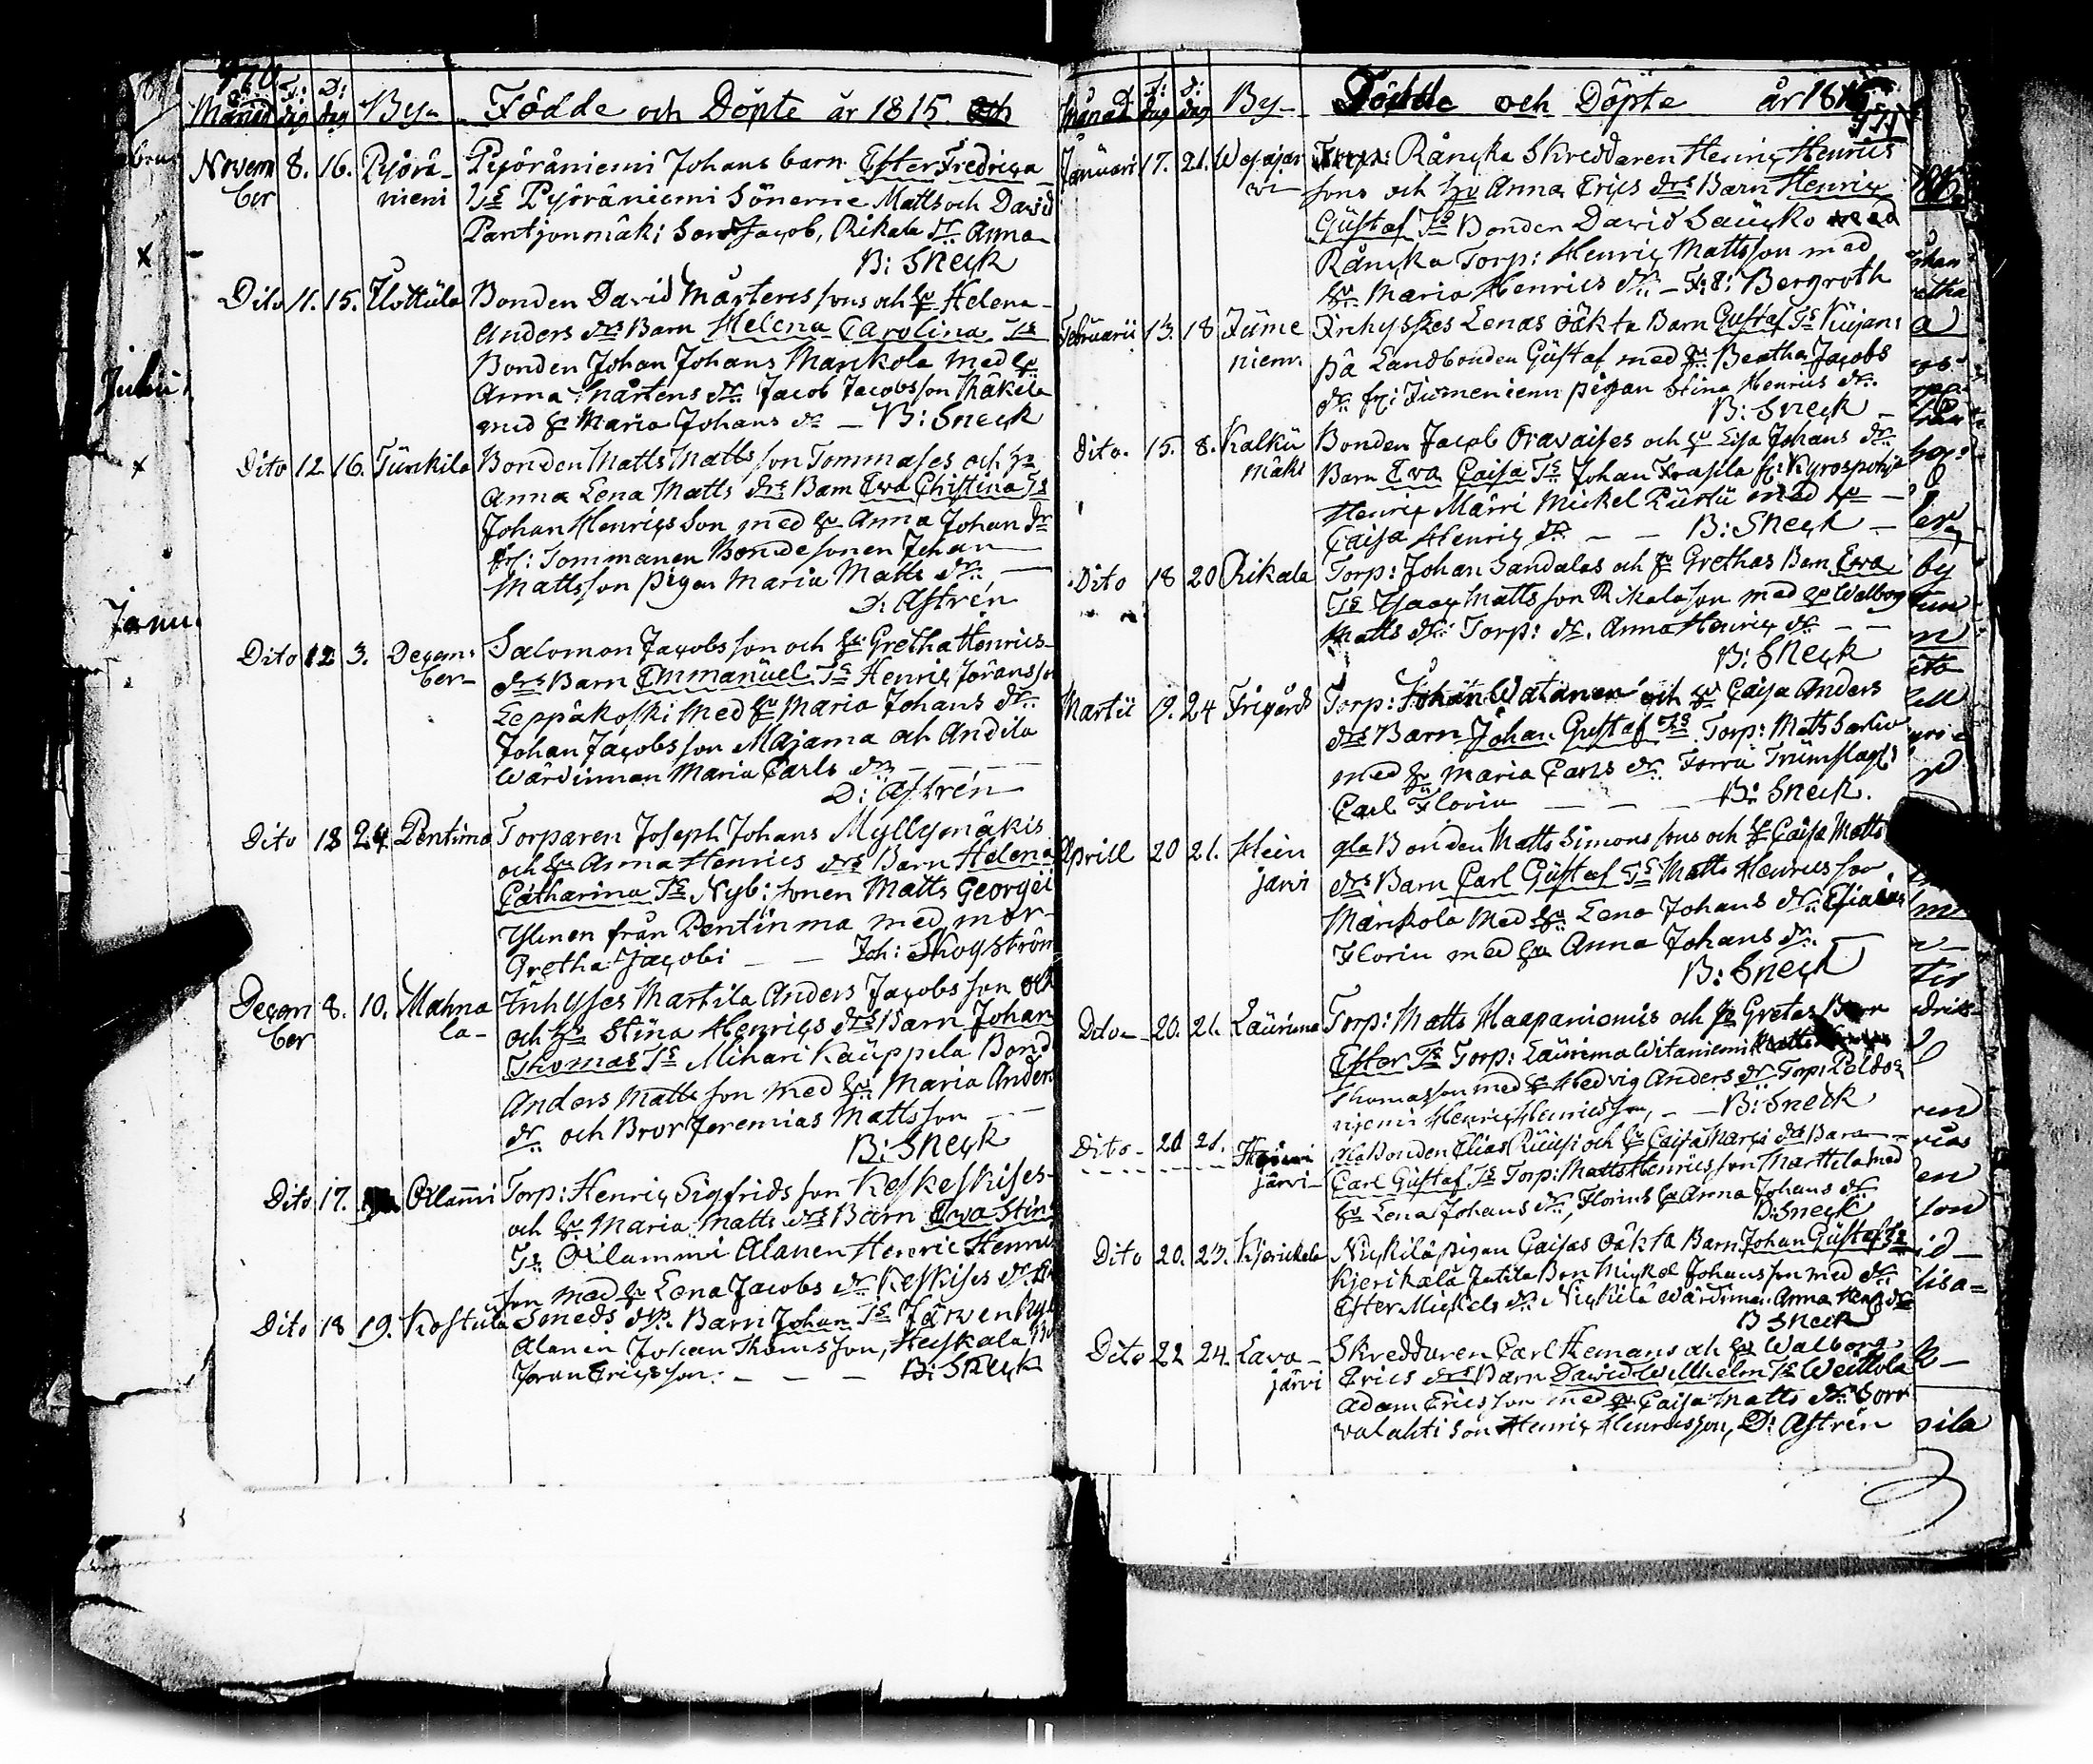 970
Månad F: dag D: dag By Födde och Döpte år 1815
Novem 8. 16. Pyörä- Pyöräniemi Johans barn Ester Fredrica
ber niemi Ts Pyöräniemi Sönerne Matts och David
Pantjonmäki Son Jacob, Rikala dr Anna
B: Sneck
Dito 11. 15. Uottila Bonden David Mårtens sons och hu Helena
Anders drs Barn Helena Carolina Ts
Bonden Johan Johans Mankola med hu
Anna Mårtens dr Jacob Jacobsson Mäkilä
med hu Maria Johans dr – B: Sneck
Dito 12 16. Junkila Bonden Matts Matts son Tommases och hu
Anna Lena Matts drs Barn Eva Christina Ts
Johan Henrics son med hu Anna Johan dr
fr: Tommanen Bondesonen Johan
Mattsson pigan Maria Matts dr
D: Astrén
Dito 12 3. Decem- Salomon Jacobs son och hu Gretha Henrics
ber drs Barn Emmanuel Ts Henric Jöransson
Leppäkoski med hu Maria Johans dr
Johan Jacobsson Majama och Andila
Wärdinnan Maria Carls dr
D: Astrén
Dito 18 24 Pentima Torparen Joseph Johans Myllymäkis
och hu Anna Henrics drs Barn Helena
Catharina Ts Nyb: sonen Matts Georgii
Ylinen från Pentinma med mor
Gretha Jacobi – Joh: Skogström
Decem 8. 10. Mahna Inhyses Martila Anders Jacobsson och
ber la- och hu Stina Henrics drs Barn Johan
Thomas Ts Mihari Kauppela Bond
Anders Matts son med hu Maria Anders
dr och Bror Jeremias Mattsson
B: Sneck
Dito 17. Oilammi Torp: Henric Sigfrids son Keskeskises
och hu Maria Matts drs Barn Eva Stina
Ts Oilammi Alanen Henric Henrics
son med hu Lena Jacobs dr Keskises dr
Dito 18 19. Kostula Smeds drs Barn Johan Ts Järvenkylä
Alanen Johan Thomsson, Heiskala
Joran Ericsson. – – – B: Sneck
Månad F: dag D: dag By Födde och Döpte år 1816
971
Januari 17. 21. Wesajär Råncka Skreddaren Henric Henrics
vi sons och hu Anna Erics drs Barn Henric
Gustaf Ts Bonden David Saucko med
Råncka Torp: Henric Mattsson med
hu Maria Henrics dr – Bergroth
Februarii 13. 18 Jume Inhysses Lenas oäkta Barn Gustaf Ts
niemi på Landbonden Gustaf med hu Beatha Jacobs
dr fr: Jumeniemi pigan Stina Henrics dr
B: Sneck
Dito 15. 8. Kalku Bonden Jacob Oravaises och hu Lisa Johans dr
mäki Barn Eva Caisa Ts Johan Frasila fr: Kyrospohja
Henric Märri Mickel Purtu med hu
Caisa Henric dr – – B: Sneck
Dito 18 20 Rikala Torp: Johan Sandalas och hu Grethas Barn Eva
Ts Isaac Matts son Rikala son med hu Walborg
Matts dr Torp: dr. Anna Henric dr
B: Sneck
Martii 19. 24 Frigårds Torp: Johan Watanen och hu Caisa Anders
drs Barn Johan Gustaf Ts Torp: Matts
med hu Maria Carls dr Torra Trumslag:
Carl Florin – – B: Sneck.
Aprill 20 21. Hein gla Bonden Matts Simons sons och hu Caisa Matts
jarvi drs Barn Carl Gustaf Ts Matts Henrics son
Mankola med hu Lena Johans dr
Florin med hu Anna Johans dr
B: Sneck
Dito 20. 21. Laurima Torp: Matts Haapaniemis och hu Gretas Barn
Ester Ts Torp: Laurima Witaniemi
Thomasson med hu Hedvig Anders dr Torp:
niemi Henric Henricsson, – B: Sneck
Dito 20 21. Hein gla Bonden Elias och hu Caisa drs Barn
järvi Carl Gustaf Ts Torp: Matts Henrics son Marttila med
hu Lena Johans dr, Florins hu Anna Johans dr
B: Sneck
Dito 20. 23. Kjerickala Nickilä pigan Caisas oäkta Barn Johan Gustaf Ts
Kjerikala Jutila Bon Mickel Johansson med dr
Ester Mickels dr Nickilä Wärdinna Anna
B Sneck
Dito 22 24. Lava- Skreddaren Carl Hemans och hu Walborg
järvi Erics drs Barn David Wilhelm Ts
Adam Ericsson med hu Caisa Matts dr Sorr
valahti Son Henric Henricsson, D: Astrén